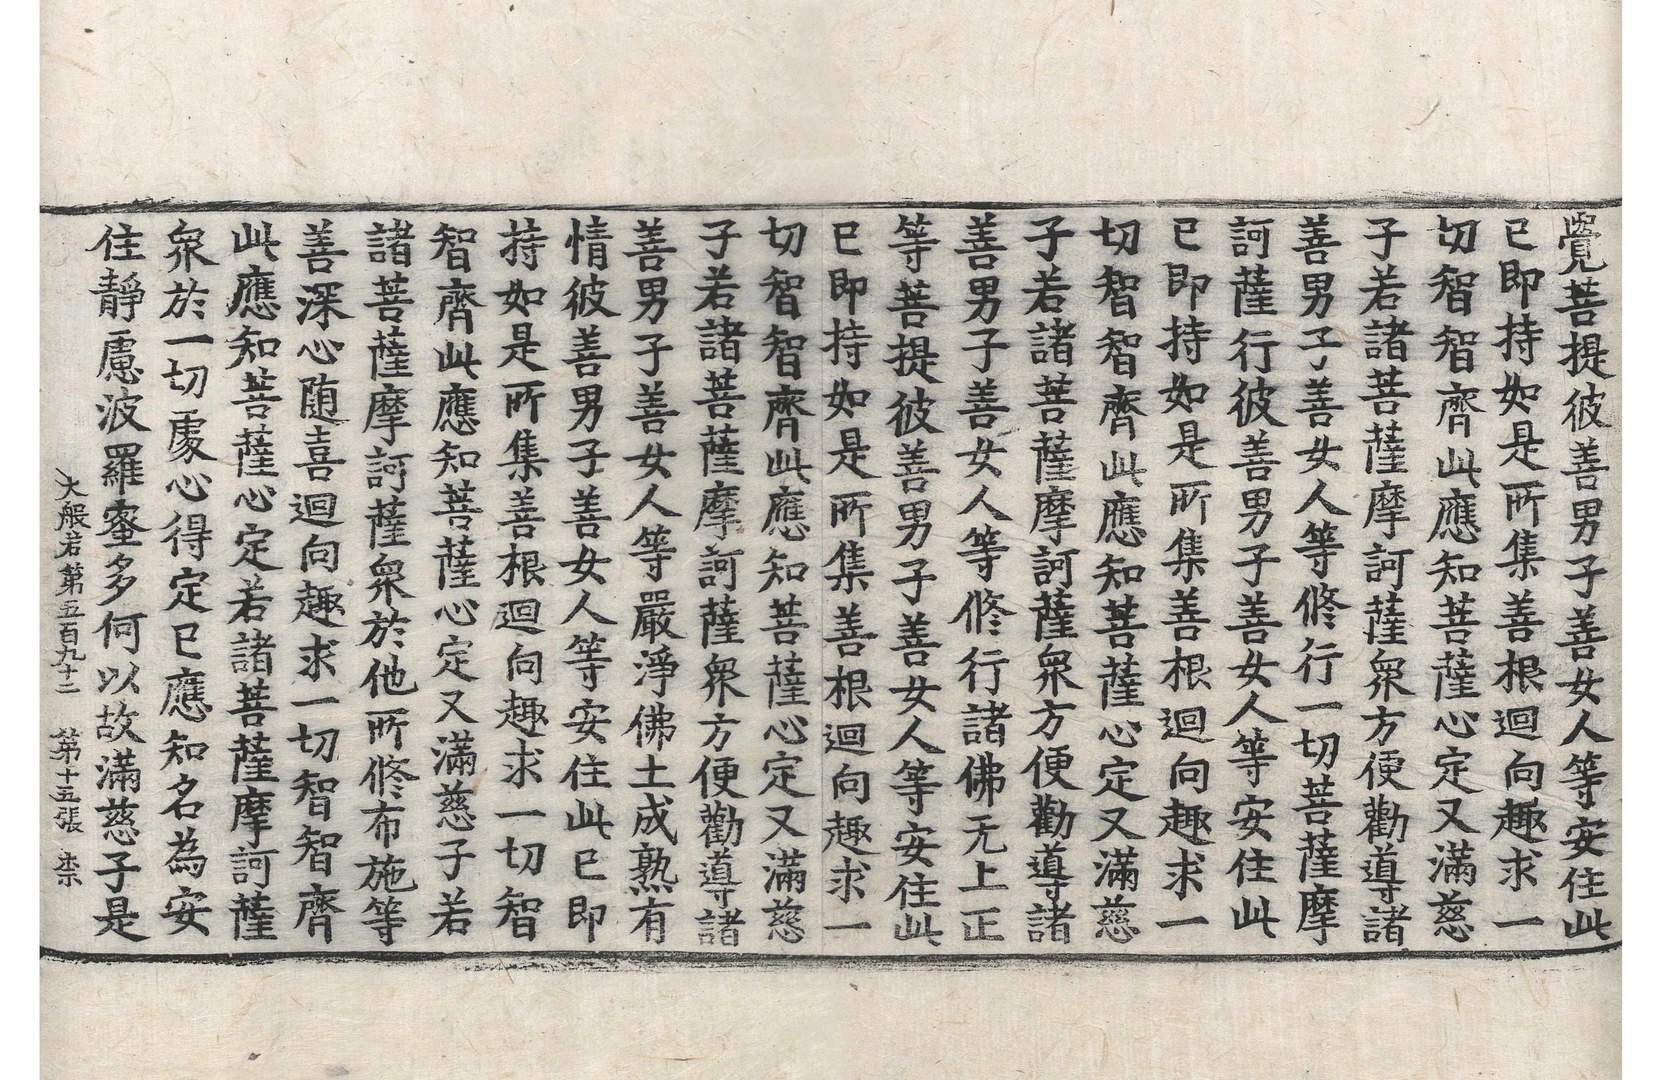 覺菩提彼善男子善女人等安住此
已即持如是所集善根迴向趣求一
切智智齊此應知菩薩心定又滿慈
子若諸菩薩摩訶薩衆方便勸導諸
善男子善女人等修行一切菩薩摩
訶薩行彼善男子善女人等安住此
已即持如是所集善根迴向趣求一
切智智齊此應知菩薩心定又滿慈
子若諸菩薩摩訶薩衆方便勸導諸
善男子善女人等修行諸佛无上正
等菩提彼善男子善女人等安住此
已即持如是所集善根迴向趣求一
切智智齊此應知菩薩心定又滿慈
子若諸菩薩摩訶薩衆方便勸導諸
善男子善女人等嚴淨佛土成熟有
情彼善男子善女人等安住此已即
持如是所集善根迴向趣求一切智
智齊此應知菩薩心定又滿慈子若
諸菩薩摩訶薩衆於他所修布施等
善深心随喜迴向趣求一切智智齊
此應知菩薩心定若諸菩薩摩訶薩
衆於一切處心得定已應知名為安
住靜慮波羅蜜多何以故滿慈子是
大般若第五百九十二 第十五張 柰